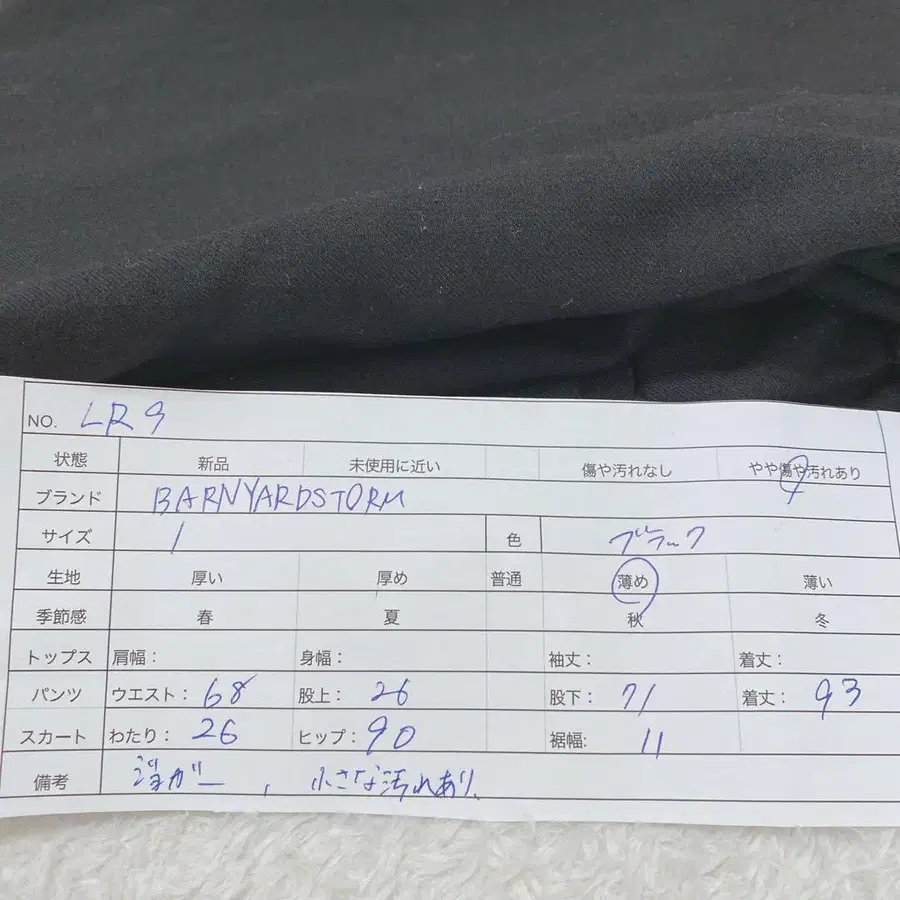 NO. LR9
状態 新品 未使用に近い 傷や汚れなし やや傷や汚れあり
ブランド BARNYARDSTORM
サイズ 1 色 ブラック
生地 厚い 厚め 普通 薄め 薄い
季節感 春 夏 秋 冬
トップス 肩幅： 身幅： 袖丈： 着丈：
パンツ ウエスト： 68 股上： 26 股下： 71 着丈： 93
スカート わたり： 26 ヒップ： 90 裾幅: 11
備考 , 小さな汚れあり、